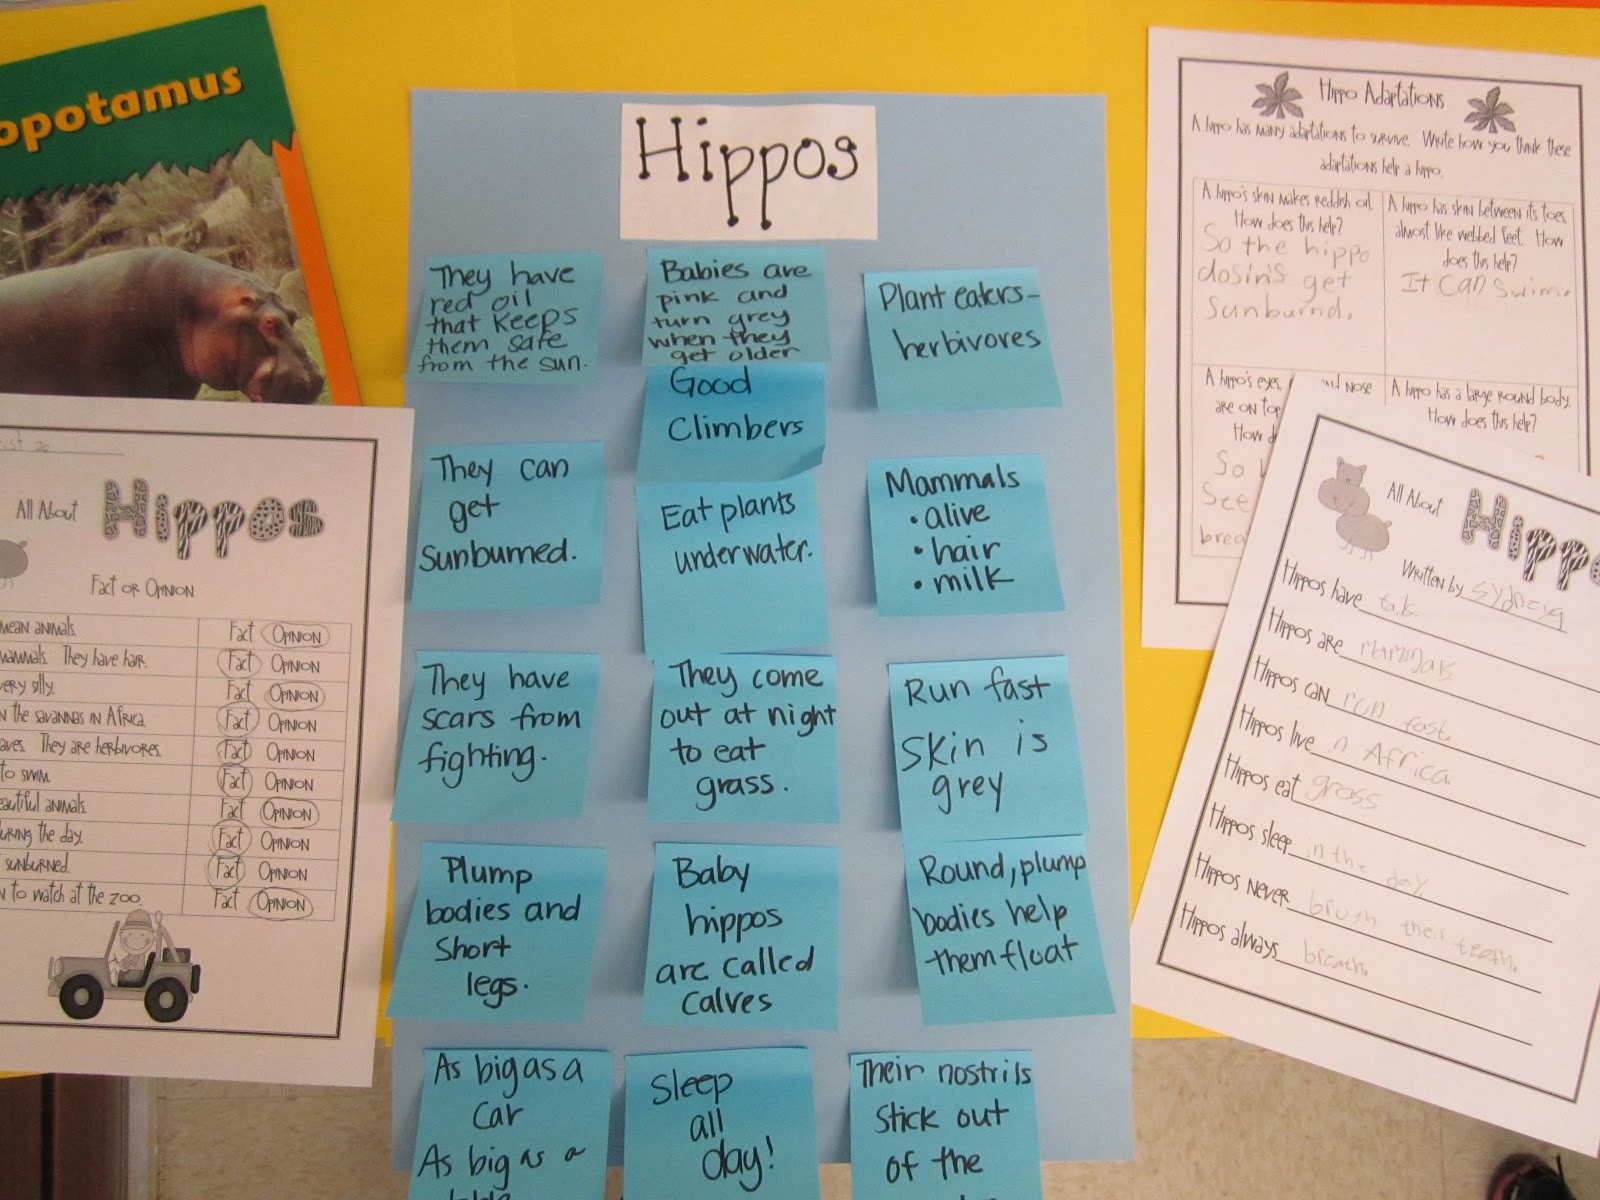 opotamus
Hippos
They have
red oil
that keeps
them safe
from the sun.
Babies are
pink and
turn grey
when they
get older
Plant eaters-
herbivores
Good
Climbers
They can
get
sunburned.
Eat plants
underwater.
Mammals
• alive
• hair
• milk
They have
scars from
fighting.
They come
out at night
to eat
grass.
Run fast
Skin is
grey
Plump
bodies and
short
legs.
Baby
hippos
are called
calves
Round, plump
bodies help
them float
As big as a
car
As big as a
Sleep
all
day!
Their nostrils
stick out
of the
All About Hippos
Fact or Opinion
mean animals. Fact Opinion
mammals. They have hair. Fact Opinion
very silly. Fact Opinion
n the savannas in Africa. Fact Opinion
aves. They are herbivores. Fact Opinion
to swim. Fact Opinion
eautiful animals. Fact Opinion
uring the day. Fact Opinion
sunburned. Fact Opinion
n to watch at the zoo. Fact Opinion
Hippo Adaptations
A hippo has many adaptations to survive. Write how you think these
adaptations help a hippo.
A hippo's skin makes reddish oil.
How does this help?
So the hippo
dosin's get
sunburnd.
A hippo has skin between its toes,
almost like webbed feet. How
does this help?
It can swim.
A hippo's eyes, nose
are on top
How d
So
See
brea
A hippo has a large round body.
How does this help?
All About Hippo
Written by Sydney
Hippos have tails.
Hippos are mammals
Hippos can run fast.
Hippos live in Africa
Hippos eat grass
Hippos sleep in the day
Hippos never brush their teeth.
Hippos always breath.